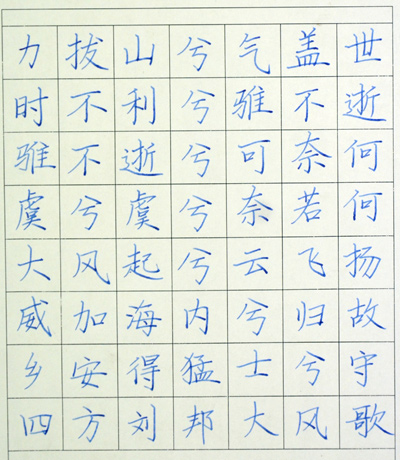 力拔山兮气盖世
时不利兮骓不逝
骓不逝兮可奈何
虞兮虞兮奈若何
大风起兮云飞扬
威加海内兮归故
乡安得猛士兮守
四方刘邦大风歌